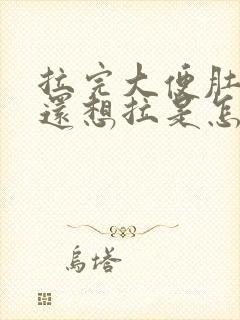 拉完大便肚
還想拉是怎
烏塔